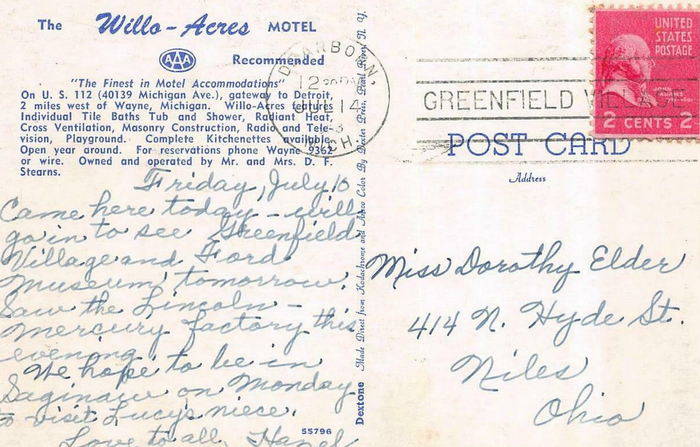 The Willo-Acres MOTEL
AAA
Recommended
"The Finest in Motel Accommodations"
On U. S. 112 (40139 Michigan Ave.), gateway to Detroit,
2 miles west of Wayne, Michigan. Willo-Acres features
Individual Tile Baths Tub and Shower, Radiant Heat,
Cross Ventilation, Masonry Construction, Radio and Tele-
vision, Playground. Complete Kitchenettes available.
Open year around. For reservations phone Wayne 9362
or wire. Owned and operated by Mr. and Mrs. D. F.
Stearns.
Friday, July 10
Came here today - will
go in to see Greenfield
Village and Ford
Museum tomorrow.
Saw the Lincoln -
Mercury factory this
evening.
We hope to be in
Saginaw on Monday
to visit Lucy's niece.
Love to all, Hazel
Dextone Made Direct from Kodachrome and Ansco Color By Dexter Press, Pearl River, N. Y.
55796
DEARBORN,
12
14
MICH.
GREENFIELD VILLAGE
UNITED
STATES
POSTAGE
JOHN
ADAMS
2 CENTS 2
POST CARD
Address
Miss Dorothy Elder
414 N. Hyde St.
Niles
Ohio